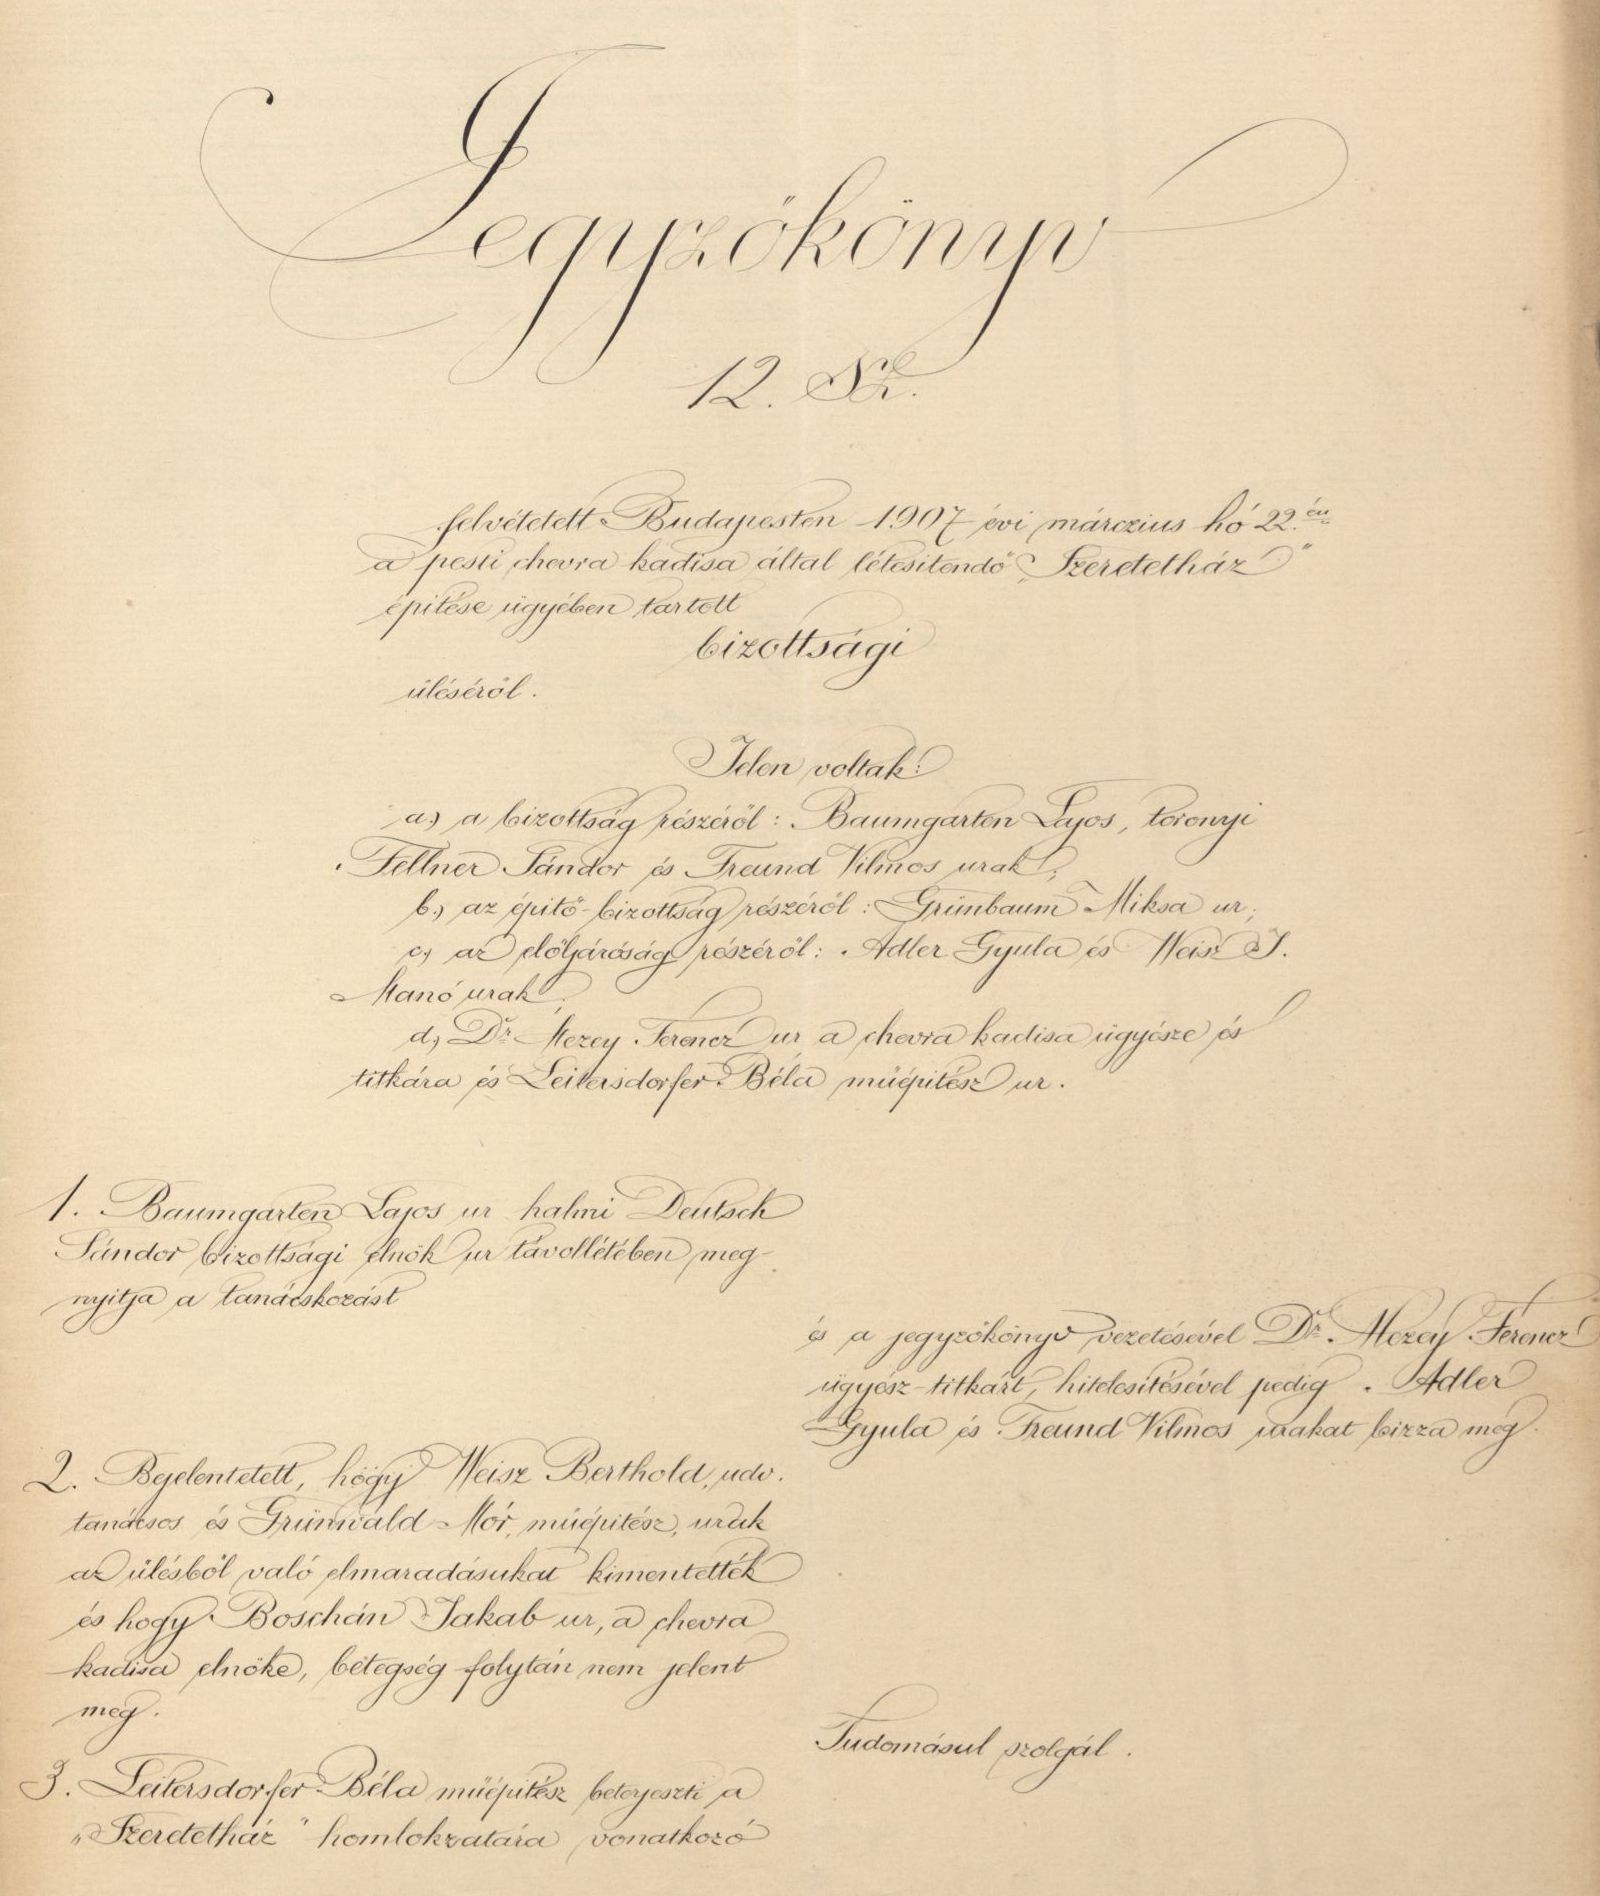 Jegyzőkönyv
12. Sz.
felvétetett Budapesten 1907 évi márczius hó 22.én
a pesti chevra kadisa által létesitendő „Szeretetház"
épitése ügyében tartott
bizottsági
üléséről.
Jelen voltak:
a.) a bizottság részéről: Baumgarten Lajos, toronyi
Fellner Sándor és Freund Vilmos urak;
b.) az épitő-bizottság részéről: Grünbaum Miksa ur;
c) az elöljáróság részéről: Adler Gyula és Weisz J.
Manó urak;
d.) Dr. Mezey Ferencz ur a chevra kadisa ügyésze és
titkára és Leitersdorfer Béla müépitész ur.
1. Baumgarten Lajos ur halmi Deutsch
Sándor bizottsági elnök ur távollétében meg-
nyitja a tanácskozást
és a jegyzőkönyv vezetésével Dr. Mezey Ferencz
ügyész-titkárt, hitelesitésével pedig Adler
Gyula és Freund Vilmos urakat bizza meg.
2. Bejelentetett, hogy Weisz Berthold, udv.
tanácsos és Grünwald Mór, müépitész, urak
az ülésből való elmaradásukat kimentették
és hogy Boschán Jakab ur, a chevra
kadisa elnöke, betegség folytán nem jelent
meg.
Tudomásul szolgál.
3. Leitersdorfer Béla müépitész beterjeszti a
„Szeretetház" homlokzatára vonatkozó